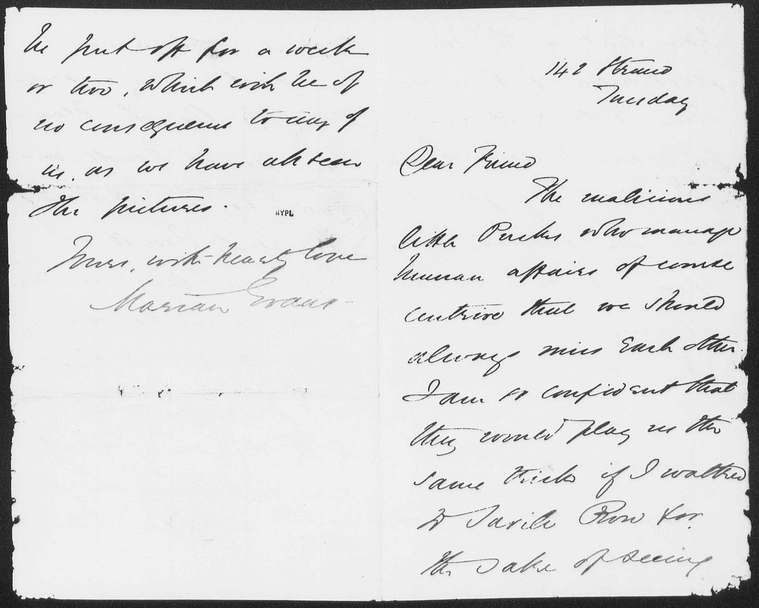 142 Strand
Tuesday
Dear Friend
The malicious
little Pucks who manage
human affairs of course
contrive that we should
always miss each other.
I am so confident that
they would play us the
same trick if I walked
to Savile Row for
the sake of seeing
be put off for a week
or two, which will be of
no consequence to any of
us, as we have all seen
the pictures.
NYPL
Yours, with hearty love
Marian Evans